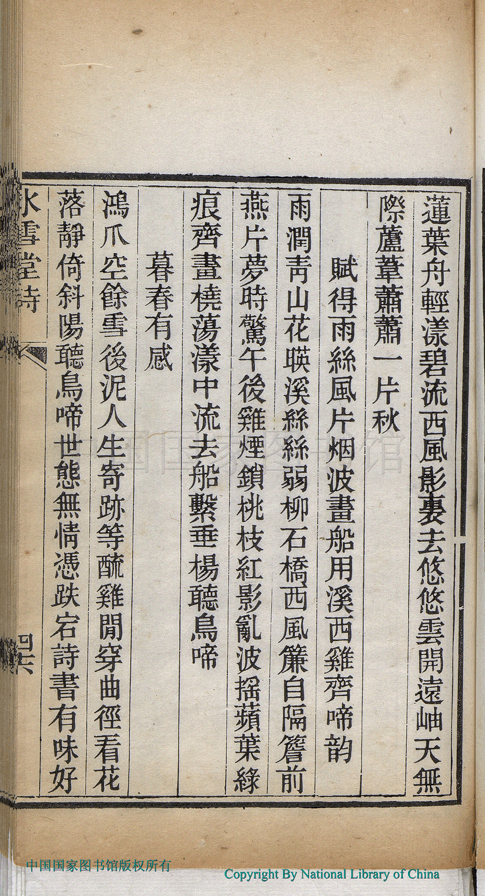 蓮葉舟輕漾碧流西風影裏去悠悠雲開遠岫天無
際蘆葦蕭蕭一片秋
賦得雨絲風片烟波畫船用溪西雞齊啼韵
雨潤青山花暎溪絲絲弱柳石橋西風簾自隔簷前
燕片夢時驚午後雞煙鎖桃枝紅影亂波摇蘋葉綠
痕齊畫橈蕩漾中流去船繫垂楊聽鳥啼
暮春有感
鴻爪空餘雪後泥人生寄跡等醯雞閒穿曲徑看花
落靜倚斜陽聽鳥啼世態無情憑跌宕詩書有味好
冰雪堂詩
四六
中国国家图书馆
中国国家图书馆版权所有
Copyright By National Library of China